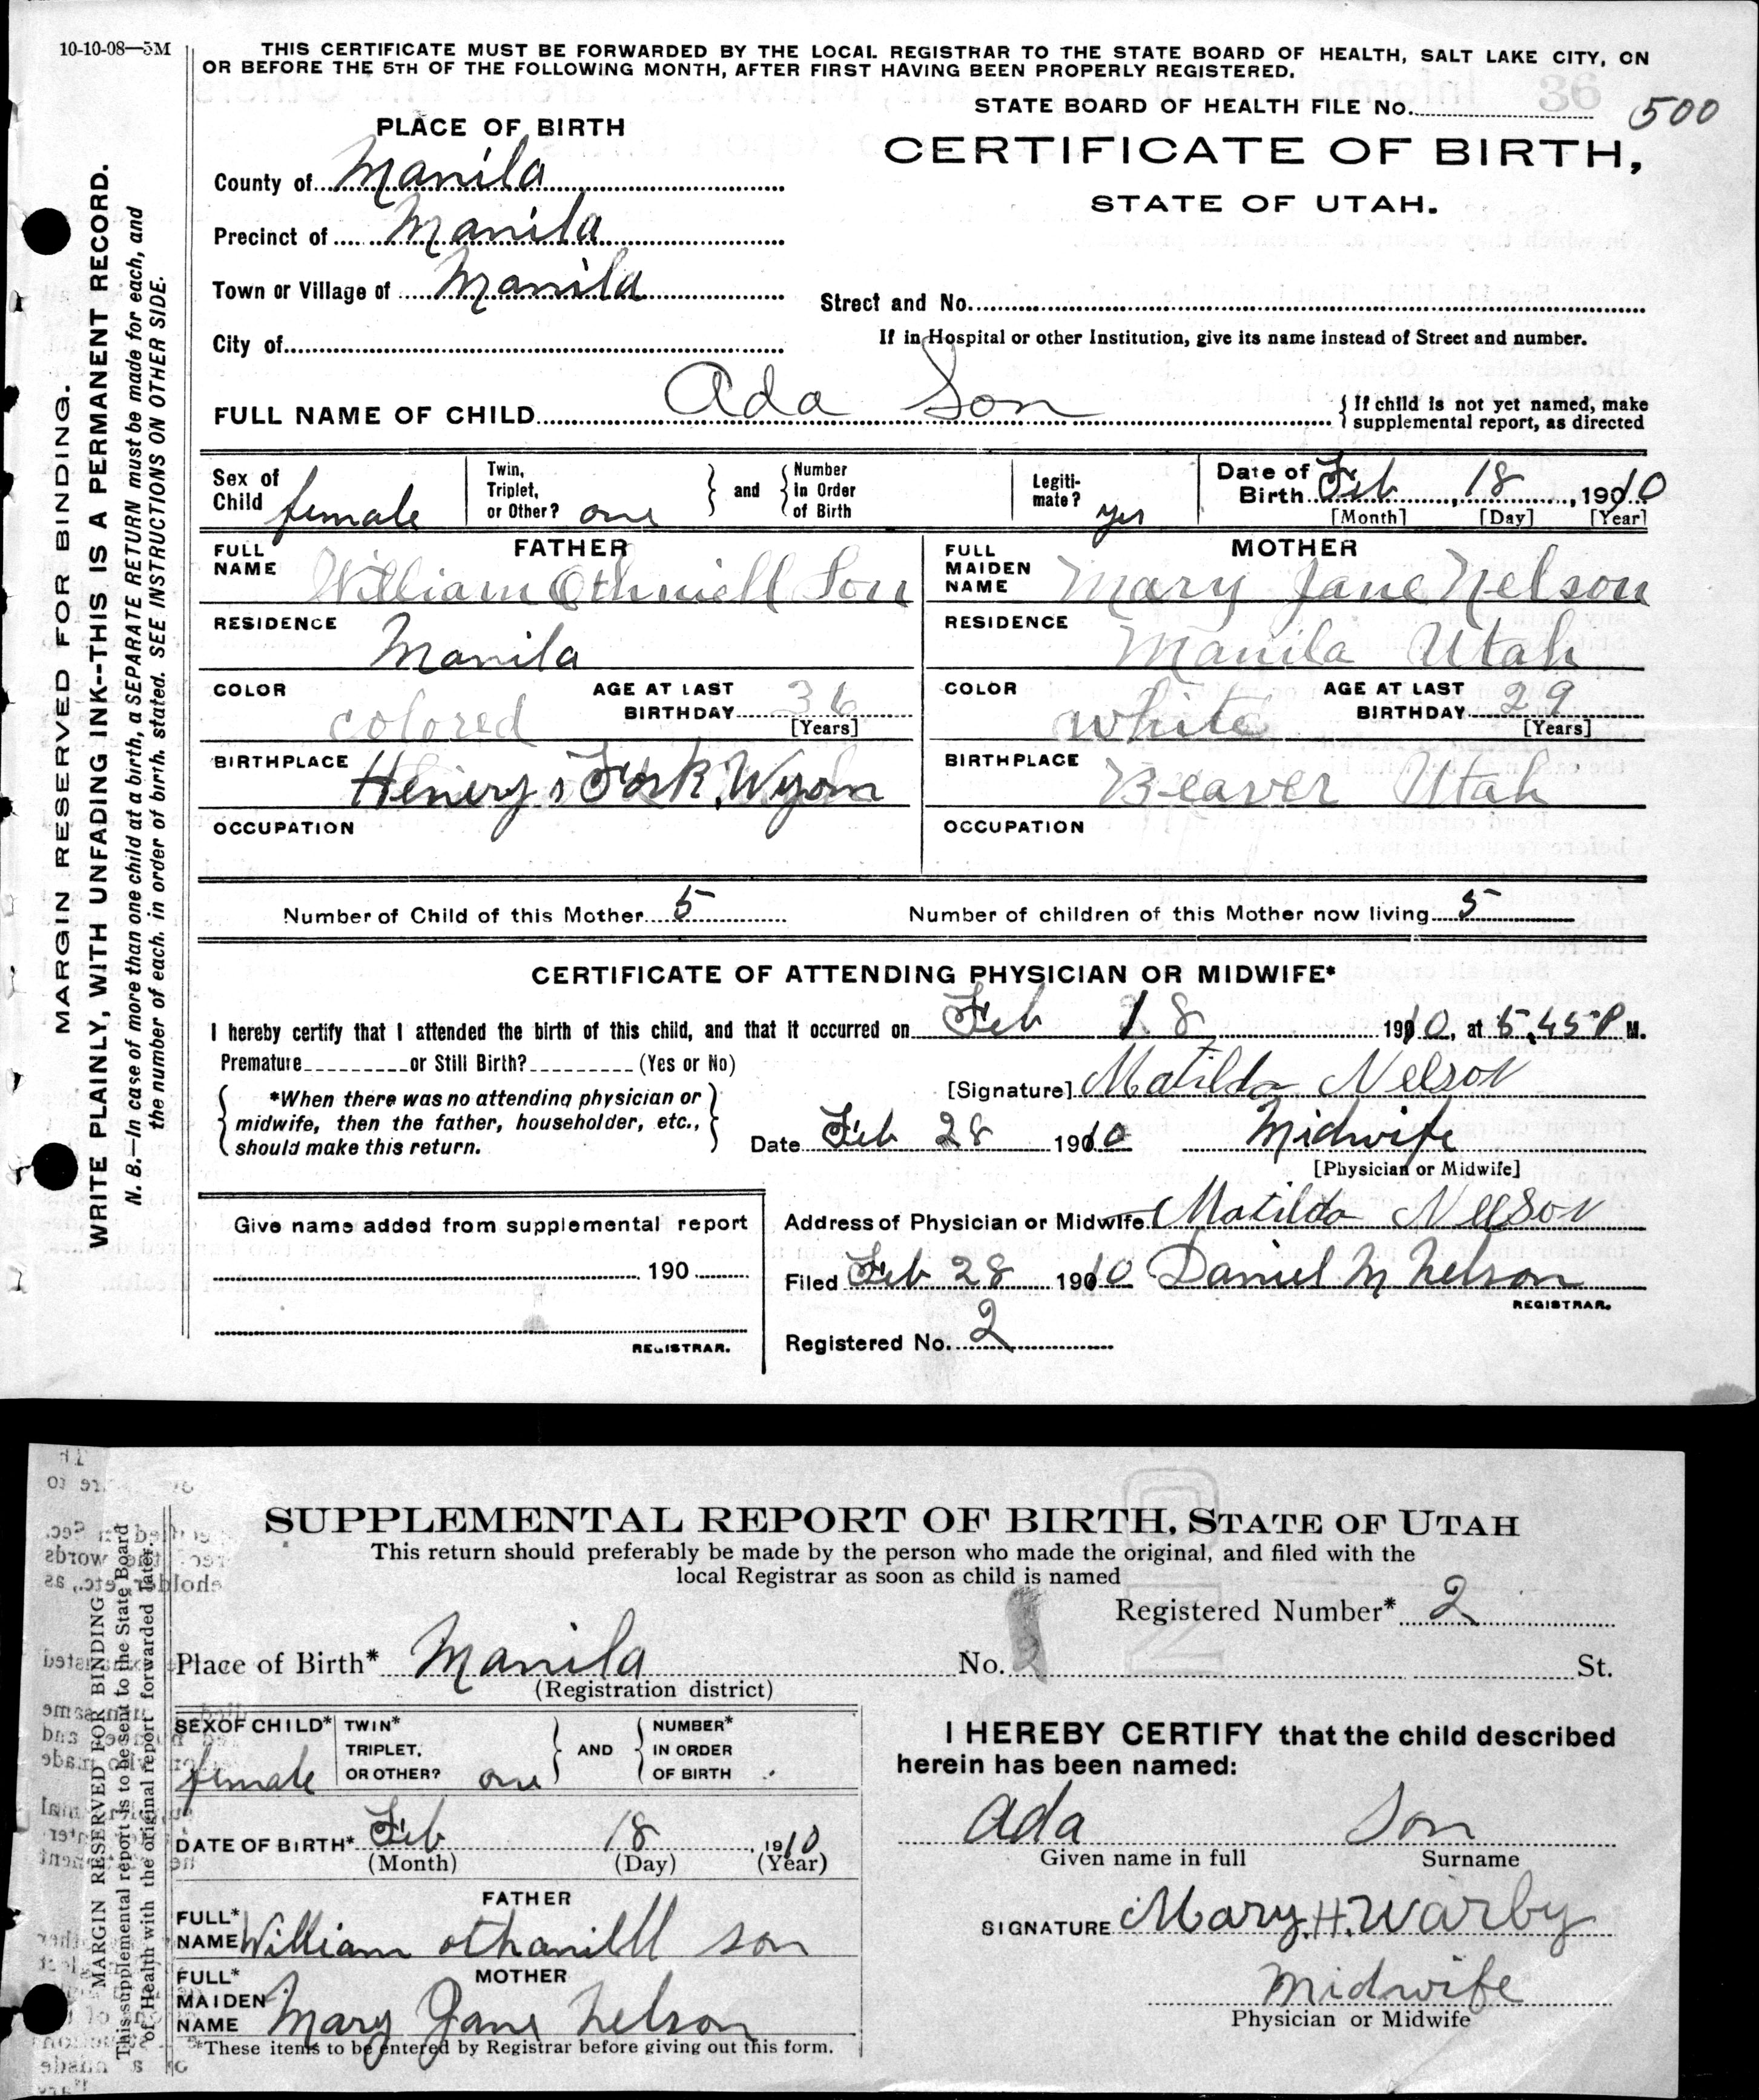 10-10-08—5M
THIS CERTIFICATE MUST BE FORWARDED BY THE LOCAL REGISTRAR TO THE STATE BOARD OF HEALTH, SALT LAKE CITY, ON
OR BEFORE THE 5TH OF THE FOLLOWING MONTH, AFTER FIRST HAVING BEEN PROPERLY REGISTERED.
STATE BOARD OF HEALTH FILE No. 36 500
PLACE OF BIRTH
CERTIFICATE OF BIRTH,
STATE OF UTAH.
County of Manila
Precinct of Manila
Town or Village of Manila
Street and No.
City of
If in Hospital or other Institution, give its name instead of Street and number.
FULL NAME OF CHILD Ada Son { If child is not yet named, make
supplemental report, as directed
Sex of Child female
Twin, Triplet, or Other? one } and { Number in Order of Birth
Legitimate? yes
Date of Birth Feb, 18, 1910
[Month] [Day] [Year]
FATHER
FULL NAME William Othniell Son
MOTHER
FULL MAIDEN NAME Mary Jane Nelson
RESIDENCE Manila
RESIDENCE Manila Utah
COLOR colored AGE AT LAST BIRTHDAY 36 [Years]
COLOR white AGE AT LAST BIRTHDAY 29 [Years]
BIRTHPLACE Henery s Fork, Wyom
BIRTHPLACE Beaver Utah
OCCUPATION
OCCUPATION
Number of Child of this Mother 5
Number of children of this Mother now living 5
CERTIFICATE OF ATTENDING PHYSICIAN OR MIDWIFE*
I hereby certify that I attended the birth of this child, and that it occurred on Feb 18 1910, at 5.45 P M.
Premature or Still Birth? (Yes or No)
[Signature] Matilda Nelson
{ *When there was no attending physician or
midwife, then the father, householder, etc.,
should make this return. }
Date Feb 28 1910 Midwife
[Physician or Midwife]
Give name added from supplemental report
190
REGISTRAR.
Address of Physician or Midwife Matilda Nelson
Filed Feb 28 1910 Daniel M Nelson
REGISTRAR.
Registered No. 2
MARGIN RESERVED FOR BINDING.
WRITE PLAINLY, WITH UNFADING INK--THIS IS A PERMANENT RECORD.
N. B.—In case of more than one child at a birth, a SEPARATE RETURN must be made for each, and
the number of each. in order of birth. stated. SEE INSTRUCTIONS ON OTHER SIDE.
SUPPLEMENTAL REPORT OF BIRTH, STATE OF UTAH
This return should preferably be made by the person who made the original, and filed with the
local Registrar as soon as child is named
Registered Number* 2
Place of Birth* Manila No. 2 St.
(Registration district)
SEX OF CHILD* female
TWIN* TRIPLET, OR OTHER? one } AND { NUMBER* IN ORDER OF BIRTH
DATE OF BIRTH* Feb 18, 1910
(Month) (Day) (Year)
FATHER
FULL* NAME William othanilll son
MOTHER
FULL* MAIDEN NAME Mary Jane Nelson
*These items to be entered by Registrar before giving out this form.
I HEREBY CERTIFY that the child described
herein has been named:
Ada Son
Given name in full Surname
SIGNATURE Mary.H.Warby
Midwife
Physician or Midwife
MARGIN RESERVED FOR BINDING
This supplemental report is to be sent to the State Board
of Health with the original report forwarded later.